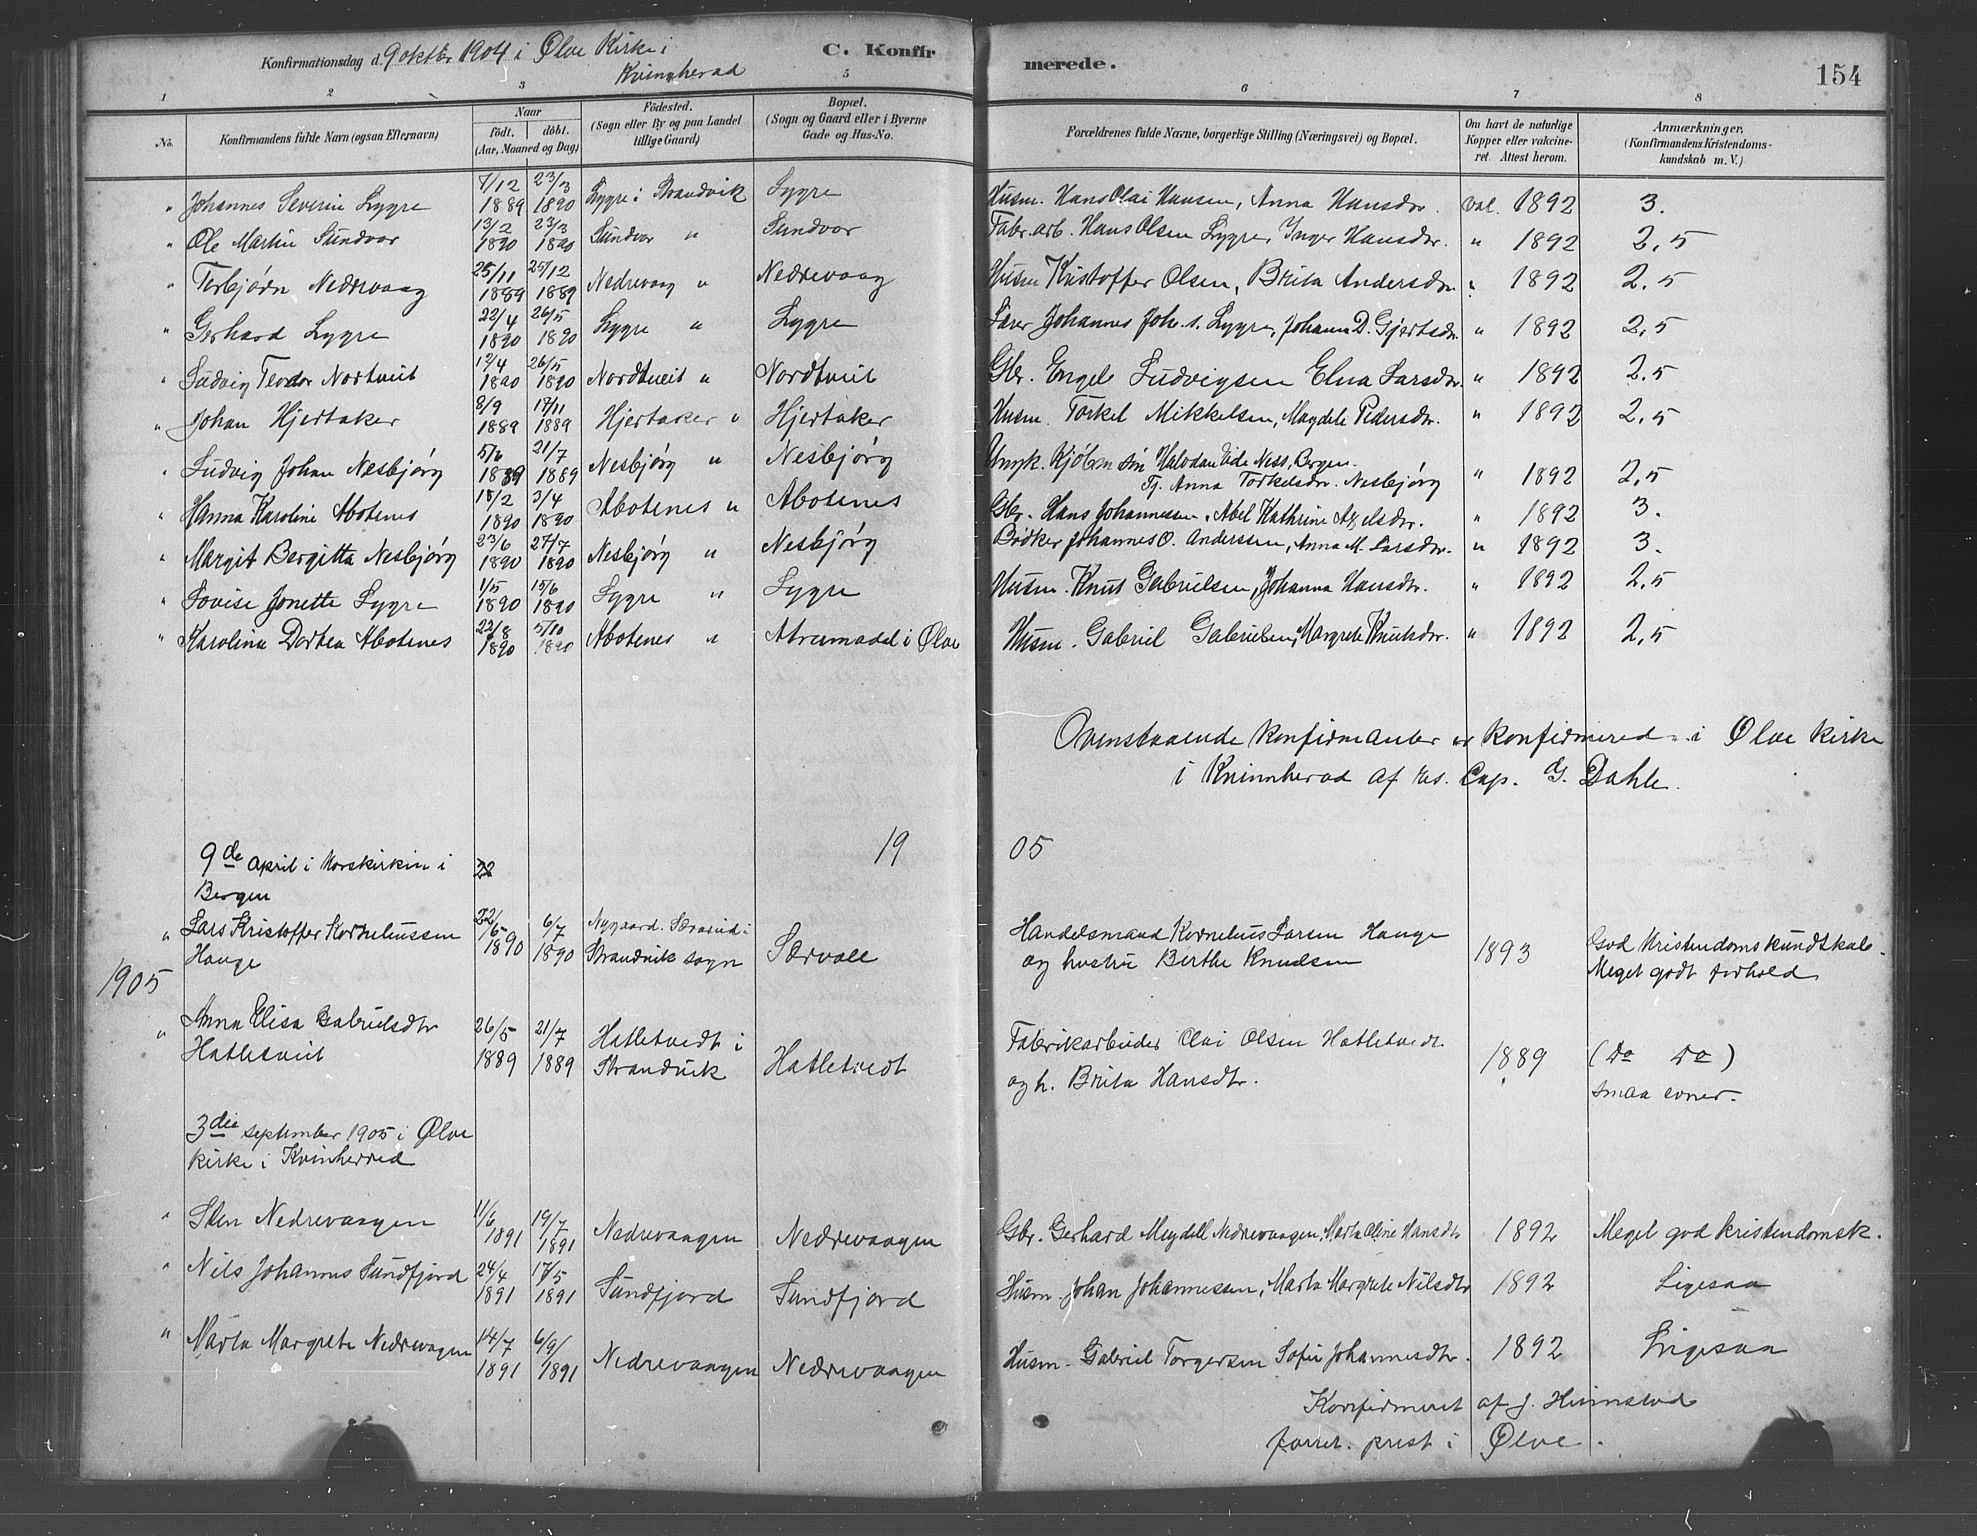 Konfirmationsdag d. 9 oktbr 1904 i Ølve Kirke i Kvinnherad
C. Konfirmerede.
154
1 2 3 5 6 7 8
No.
Konfirmandens fulde Navn (ogsaa Efternavn)
Naar
födt. döbt.
(Aar, Maaned og Dag)
Födested.
(Sogn eller By og paa Landet tillige Gaard)
Bopæl.
(Sogn og Gaard eller i Byerne Gade og Hus-No.
Forældrenes fulde Navne, borgerlige Stilling (Næringsvei) og Bopæl.
Om havt de naturlige Kopper eller vakcineret. Attest herom.
Anmærkninger.
(Konfirmandens Kristendomskundskab m. V.)
" Johannes Severin Lygre 7/12 1889 23/3 1890 Lygre i Strandvik Lygre Husm. Hans Olai Hansen, Anna Hansdtr. vac. 1892 3.
" Ole Martin Sundvor 13/2 1890 23/3 1890 Sundvor " Sundvor Fabr. arb. Hans Olsen Lygre, Inger Hansdtr. " 1892 2,5
" Torbjörn Nedrevaag 25/11 1889 25/12 1889 Nedrevaag " Nedrevaag Husm Kristoffer Olsen, Brita Andersdtr. " 1892 2.5
" Gerhard Lygre 22/4 1890 26/5 1890 Lygre " Lygre Lærer Johannes Joh. s. Lygre, Johanna D. Gjertsdtr. " 1892 2,5
" Ludvig Teodor Nortveit 17/4 1890 26/5 1890 Nordtveit " Nordtveit Gbr. Engel Ludvigsen Elna Larsdtr. " 1892 2.5
" Johan Hjertaker 8/9 1889 17/11 1889 Hjertaker " Hjertaker Husm. Torkel Mikkelsen, Magdele Pedersdtr. " 1892 2,5
" Ludvig Johan Nesbjørg 5/6 1889 21/7 1889 Nesbjørg " Nesbjørg Ungk. Halvdan Ness, Bergen.
Tj. Anna Torkelsdtr. Nesbjørg " 1892 2,5
" Hanna Karoline Abotenes 18/2 1890 3/4 1890 Abotenes " Abotenes Gbr. Hans Johannessen, Abel Kathrine Axelsdtr. " 1892 3.
" Margit Bergitta Nesbjørg 23/6 1890 27/7 1890 Nesbjørg " Nesbjørg Bødker Johannes O. Anderssen, Anna M. Larsdtr. " 1892 3.
" Lovise Jonette Lygre 1/5 1890 15/6 1890 Lygre " Lygre Husm. Knut Gabrielsen, Johanna Hansdtr. " 1892 2,5
" Karolina Dortea Abotenes 22/8 1890 5/10 1890 Abotenes " Atramadal i Ølve Husm. Gabriel Gabrielsen, Margrete Knutsdtr. " 1892 2,5
Ovenstaaende konfirmanter er konfirmered i Ølve kirke
i Kvinnherad af res. Cap. G. Dahle.
1905
9de april i Korskirken i Bergen
" Lars Kristoffer Korneliussen Hauge 22/5 1890 6/7 1890 Nygaard. Særvold i Strandvik sogn Særvoll Handelsmand Kornelius Larsen Hauge og hustru Berthe Knudsen 1893 God Kristendomskundtskab. Meget godt forhold
1905
" Anna Elisa Gabrielsdtr Hatletveit 26/5 1889 21/7 1889 Hatletvedt i Strandvik Hatletvedt Fabrikarbeider Olai Olsen Hatletvedt og h. Brita Hansdtr. 1889 (Do Do) smaa evner.
3die september 1905 i Ølve kirke i Kvinherred
" Sten Nedrevaagen 11/6 1891 19/7 1891 Nedrevaagen Nedrevaagen Gbr. Gerhard Meydell Nedrevaagen, Marta Oline Hansdtr 1892 Meget god kristendomsk.
" Nils Johannes Sundfjord 24/4 1891 17/5 1891 Sundfjord Sundfjord Husm. Johan Johannessen, Marta Margrete Nilsdtr 1892 Ligesaa
" Marta Margrete Nedrevagen 14/7 1891 6/9 1891 Nedrevaagen Nedrevaagen Husm. Gabriel Torgersen Sofie Johannesdtr. 1892 Ligesaa
Konfirmeret af J. Hvinnstad
forret. prest i Ølve.